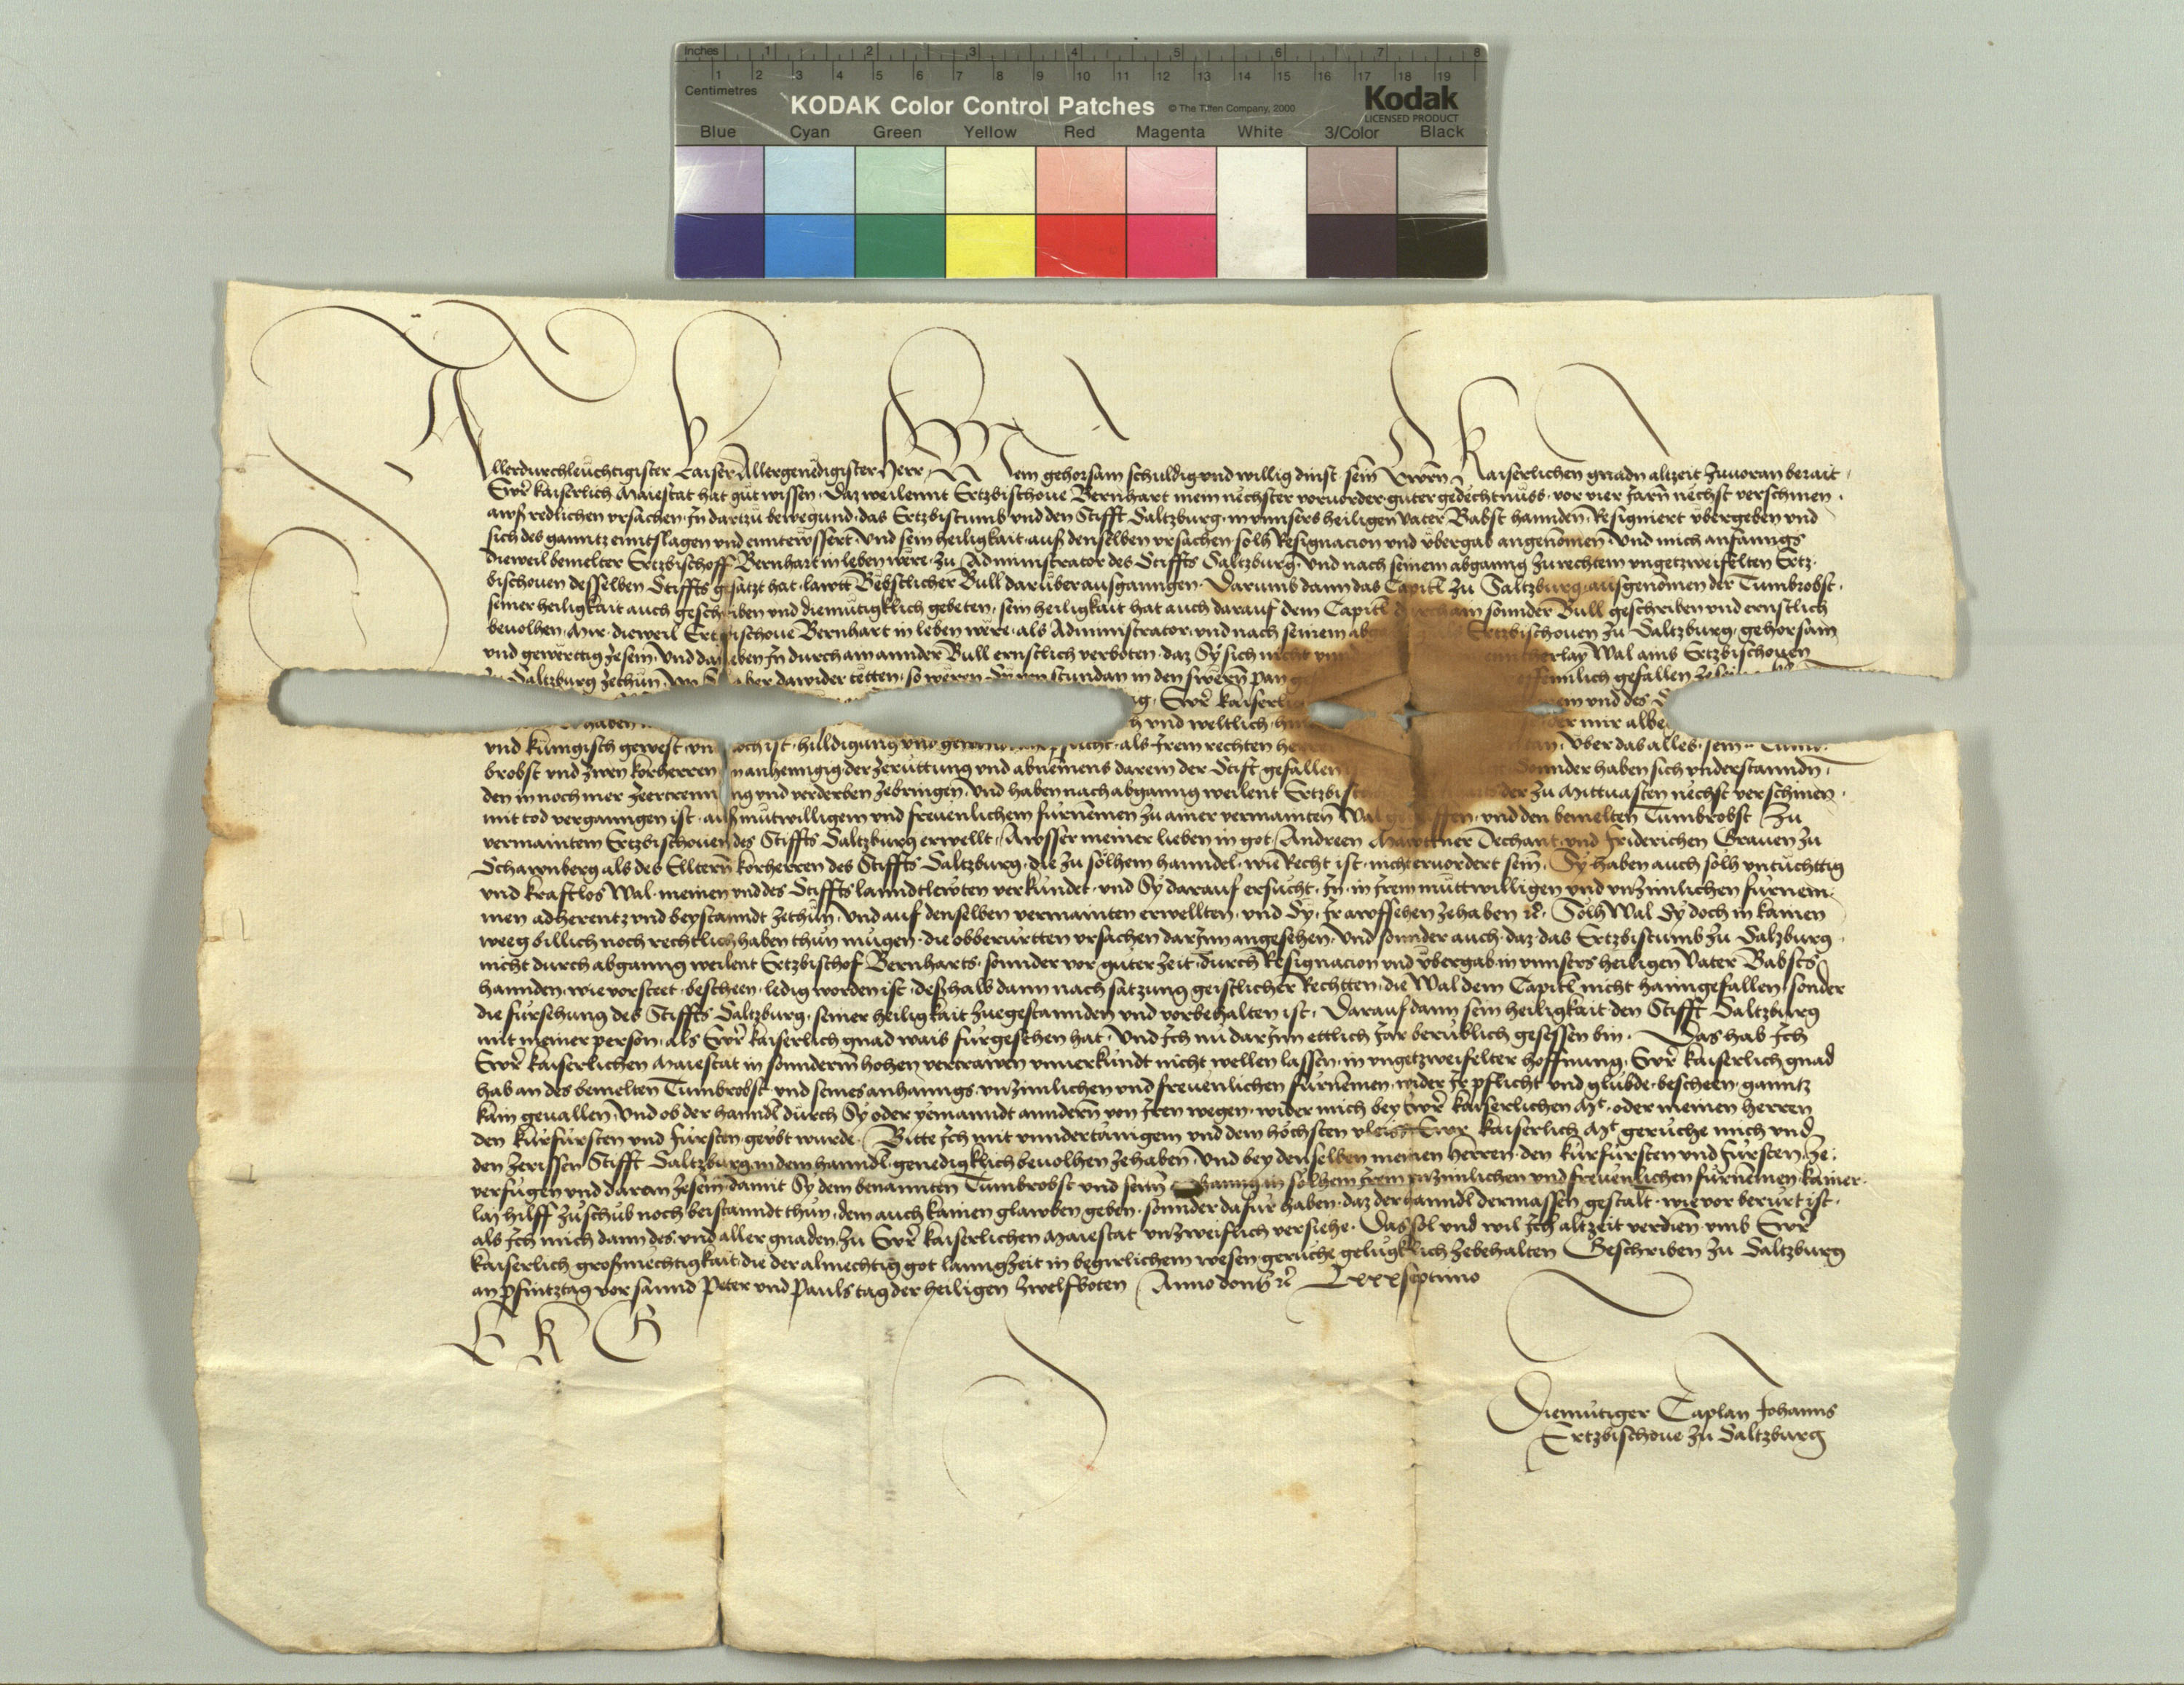 Inches 1 2 3 4 5 6 7 8
1 2 3 4 5 6 7 8 9 10 11 12 13 14 15 16 17 18 19
Centimetres
KODAK Color Control Patches © The Tiffen Company, 2000 Kodak
LICENSED PRODUCT
Blue Cyan Green Yellow Red Magenta White 3/Color Black
Allerdurchleuchtigister Kaiser Allergenedigister Herr, Mein gehorsam schuldig vnd willig dinst sein Ewrn Kaiserlichen gnadn altzeit zuuoran berait.
Ewr kaiserlich Maiestat hat gut wissen, Daz weilennt Ertzbischoue Bernhart mein nechster voruorder guter gedechtnüss, vor vier Jarn nechst verschinen.
aws redlichen vrsachen In dartzu bewegund, das Ertzbistumb vnd den Stifft Saltzburg, in vnnsers heiligen Vater Babst hannden, Resigniert übergeben vnd
sich des ganntz enntslagen vnd enntewssert, Vnd sein heiligkait auß denselben vrsachen solh Resignacion vnd übergab angenomen, Vnd mich anfanngs
dieweil bemelter Ertzbischoff Bernhart in leben were, zu Administrator des Stiffts Saltzburg, Vnd nach seinem abganng zu rechtem vngetzweifelten Ertz-
bischouen desselben Stiffts gesatzt hat, lawtt Bebstlicher Bull darüber ausganngen. Darumb dann das Capitl zu Saltzburg, ausgenomen der Tumbrobst.
seiner heiligkait auch geschriben vnd diemutigklich gebeten, sein heiligkait hat auch darauf dem Capitl durch ain sonnder Bull geschriben vnd ernstlich
beuolhen, Mir, dieweil Ertzbischoue Bernhart in leben were, als Administrator, vnd nach seinem Ertzbischouen zu Saltzburg, gehorsam
vnd gewerttig zesein, Vnd daneben In durch ain annder Bull ernstlich verboten, daz Sy sich nicht ainicherlay Wal ains Ertzbischouen
Saltzburg zethun, Wo Sy aber dawider tetten, so weren Sy von stundan in den swern pan gefallen
Ewr kaiserlich vnd des
haben vnd weltlich mir
vnd kunigisch gewest, vnd noch ist, huldigung vnd als Irem rechten herren Über das alles, sein Tumb-
brobst vnd zwen korherren anhenngig, der zeruttung vnd abnemens darein der Stift gefallen Sonnder haben sich vnderstanndn,
den in noch mer zertrennung vnd verderben zebringen, Vnd haben nach abganng weilent Ertzbischof der zu Mittuasten nechst verschinen.
mit tod verganngen ist, auß mutwilligem vnd freuenlichem furnemen zu ainer vermainten Wal gegriffen, vnd den bemelten Tumbrobst zu
vermaintem Ertzbischouen des Stiffts Saltzburg erwellt, Awsser meiner lieben in got, Andreen Mawttner Dechant, vnd Friderichen Grauen zu
Schawnberg als des Elltern korherren des Stiffts Saltzburg, die zu solhem hanndel, wie Recht ist, nicht eruordert sein, Sy haben auch solh vntuchttig
vnd kraftlos Wal, meinen vnd des Stiffts lanndtlewten verkundet, vnd Sy darauf ersucht, In, in Irem muttwilligen vnd vnzimlichen furnem-
men adherentz vnd beystanndt zethun, Vnd auf denselben vermainten erwellten, vnd Sy, Ir awffsehen zehaben ꝛc. Solh Wal Sy doch in kainen
weeg billich noch rechtlich haben thun mugen, die obberurtten vrsachen darInn angesehen, Vnd sonnder auch, daz das Ertzbistumb zu Salzburg,
nicht durch abganng weilent Ertzbischof Bernharts, sonnder vor guter zeit, durch Resignacion vnd übergab in vnnsers heiligen Vater Babsts
hannden, wie vorsteet, bescheen, ledig worden ist, deßhalb dann nach satzung geistlicher Rechtten, die Wal dem Capitl nicht haimgefallen, sonder
die fursehung des Stiffts Saltzburg, seiner heiligkait zuegestannden vnd vorbehalten ist, Darauf dann sein heiligkait den Stifft Saltzburg
mit meiner person, als Ewr kaiserlich gnad wais furgesehen hat, Vnd Ich nu darInn ettlich Jar berublich gesessen bin. Das hab Ich
Ewr kaiserlichen Maiestat in sonnderm hohen vertrawen vnuerkundt nicht wellen lassen, in vngetzweifelter hoffnung, Ewr kaiserlich gnad
hab an des bemelten Tumbrobst vnd seines anhanngs vnzimlichen vnd freuenlichen furnemen, wider Ir pflicht vnd glubde, bescheen, ganntz
kain geuallen, Vnd ob der hanndl durch Sy oder yemanndt anndern von Iren wegen, wider mich bey Ewr kaiserlichen Mt. oder meinen herren
den kurfursten vnd fursten, geubt wurde, Bitte Ich mit vnndertanigem vnd dem hochsten vleiss Ewr kaiserlich Mt geruche mich vnd
den zerissen Stifft Saltzburg in dem hanndl, genedigklich beuolhen zehaben, Vnd bey denselben meinen herren, den kurfursten vnd fursten, ze-
verfugen vnd daran zesein, damit Sy dem benannten Tumbrobst vnd seinem anhanng in solhem Irem vnzimlichen vnd freuenlichen furnemen, kainer-
lay hilff zuschub noch beistanndt thun, dem auch kainen glawben geben, sonnder dafur haben, daz der hanndl dermassen gestalt, wie vor berurt ist,
als Ich mich dann des vnd aller gnaden, zu Ewr kaiserlichen Maiestat vnzweiflich versiehe. Das sol vnd wil Ich altzeit verdien, vmb Ewr
kaiserlich großmechtigkait, die der almechtig got lanngzeit in begirlichem wesen geruche gelugklich zebehalten Geschriben zu Saltzburg
an pfintztag vor sannd Peter vnd Pauls tag der heiligen zwelfboten Anno domi ꝛc Lxxxseptimo
E K G
Diemutiger Caplan Johanns
Ertzbischoue zu Saltzburg